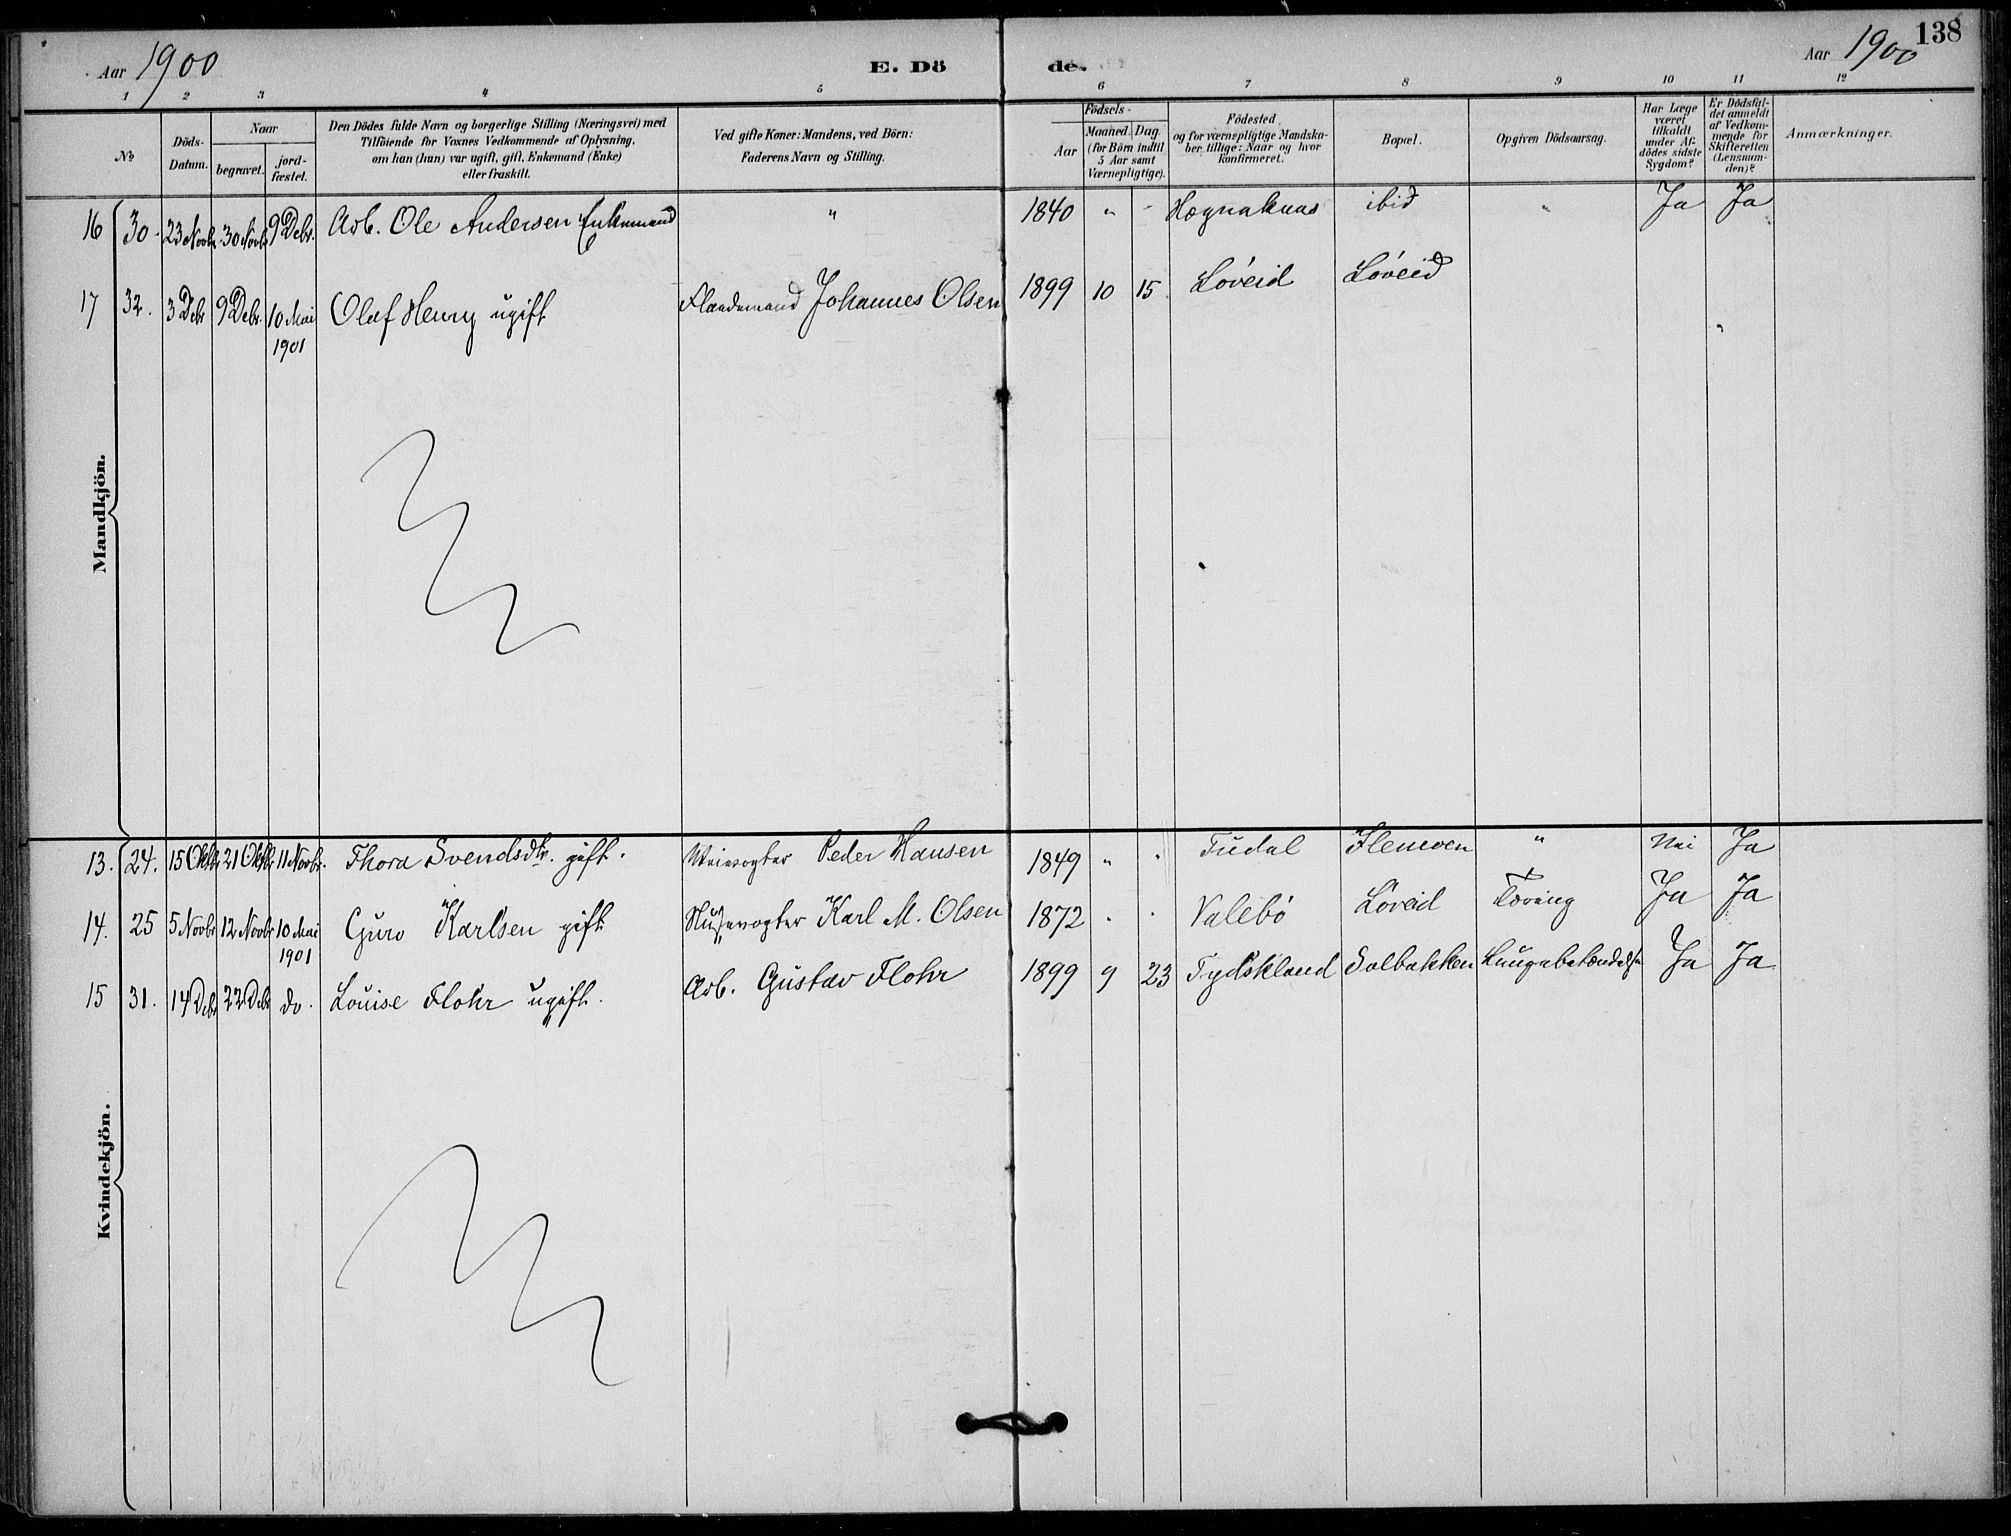 138
Aar 1900 E. Dö de. Aar 1900
1 2 3 4 5 6 7 8 9 10 11 12
No
Döds-Datum.
Naar
begravet.
jord-fæstet.
Den Dödes fulde Navn og borgerlige Stilling (Næringsvei) med
Tilföiende for Voxnes Vedkommende af Oplysning,
om han (hun) var ugift, gift, Enkemand (Enke)
eller fraskilt.
Ved gifte Koner: Mandens, ved Börn:
Faderens Navn og Stilling.
Födsels-
Aar
Maaned. Dag.
(for Börn indtil
5 Aar samt
Værnepligtige).
Födested
og for værnepligtige Mandska-
ber tillige: Naar og hvor
konfirmeret.
Bopæl.
Opgiven Dödsaarsag.
Har Læge
været
tilkaldt
under Af-
dödes sidste
Sygdom?
Er Dödsfal-
det anmeldt
af Vedkom-
mende for
Skifteretten
(Lensman-
den)?
Anmærkninger.
Mandkjön.
16 30. 23 Novbr 30 Novbr 9 Decbr. Arb. Ole Andersen Enkemand " 1840 " - ibid " Ja Ja
17 32. 3 Dcbr 9 Dcbr. 10 Mai 1901 Olaf Henry ugift Johannes Olsen 1899 10 15 Löveid Löveid "
Kvindekjön.
13. 24. 15 Oktbr 21 Oktbr 11 Novbr. Thora Svendsdtr. gift. Veivogter Peder Hansen 1849 " " Tudal " Nei Ja
14. 25 5 Novbr 12 Novbr 10 Mai 1901 Guro Karlsen gift Slusevogter Karl M. Olsen 1872 " " Valebö Löveid Tæring Ja Ja
15 31. 14 Dcbr 22 Dcbr do. Louise Flohr ugift. Arb. Gustav Flohr 1899 9 23 Tydskland Solbakken Lungebetændelse Ja Ja